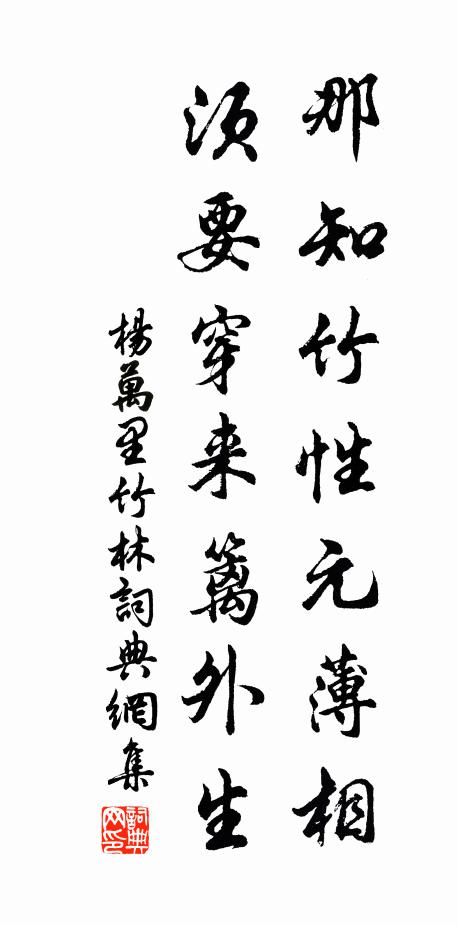 那知竹性元薄相
须要穿来篱外生
楊萬里竹林詞典網集
詞典
网印